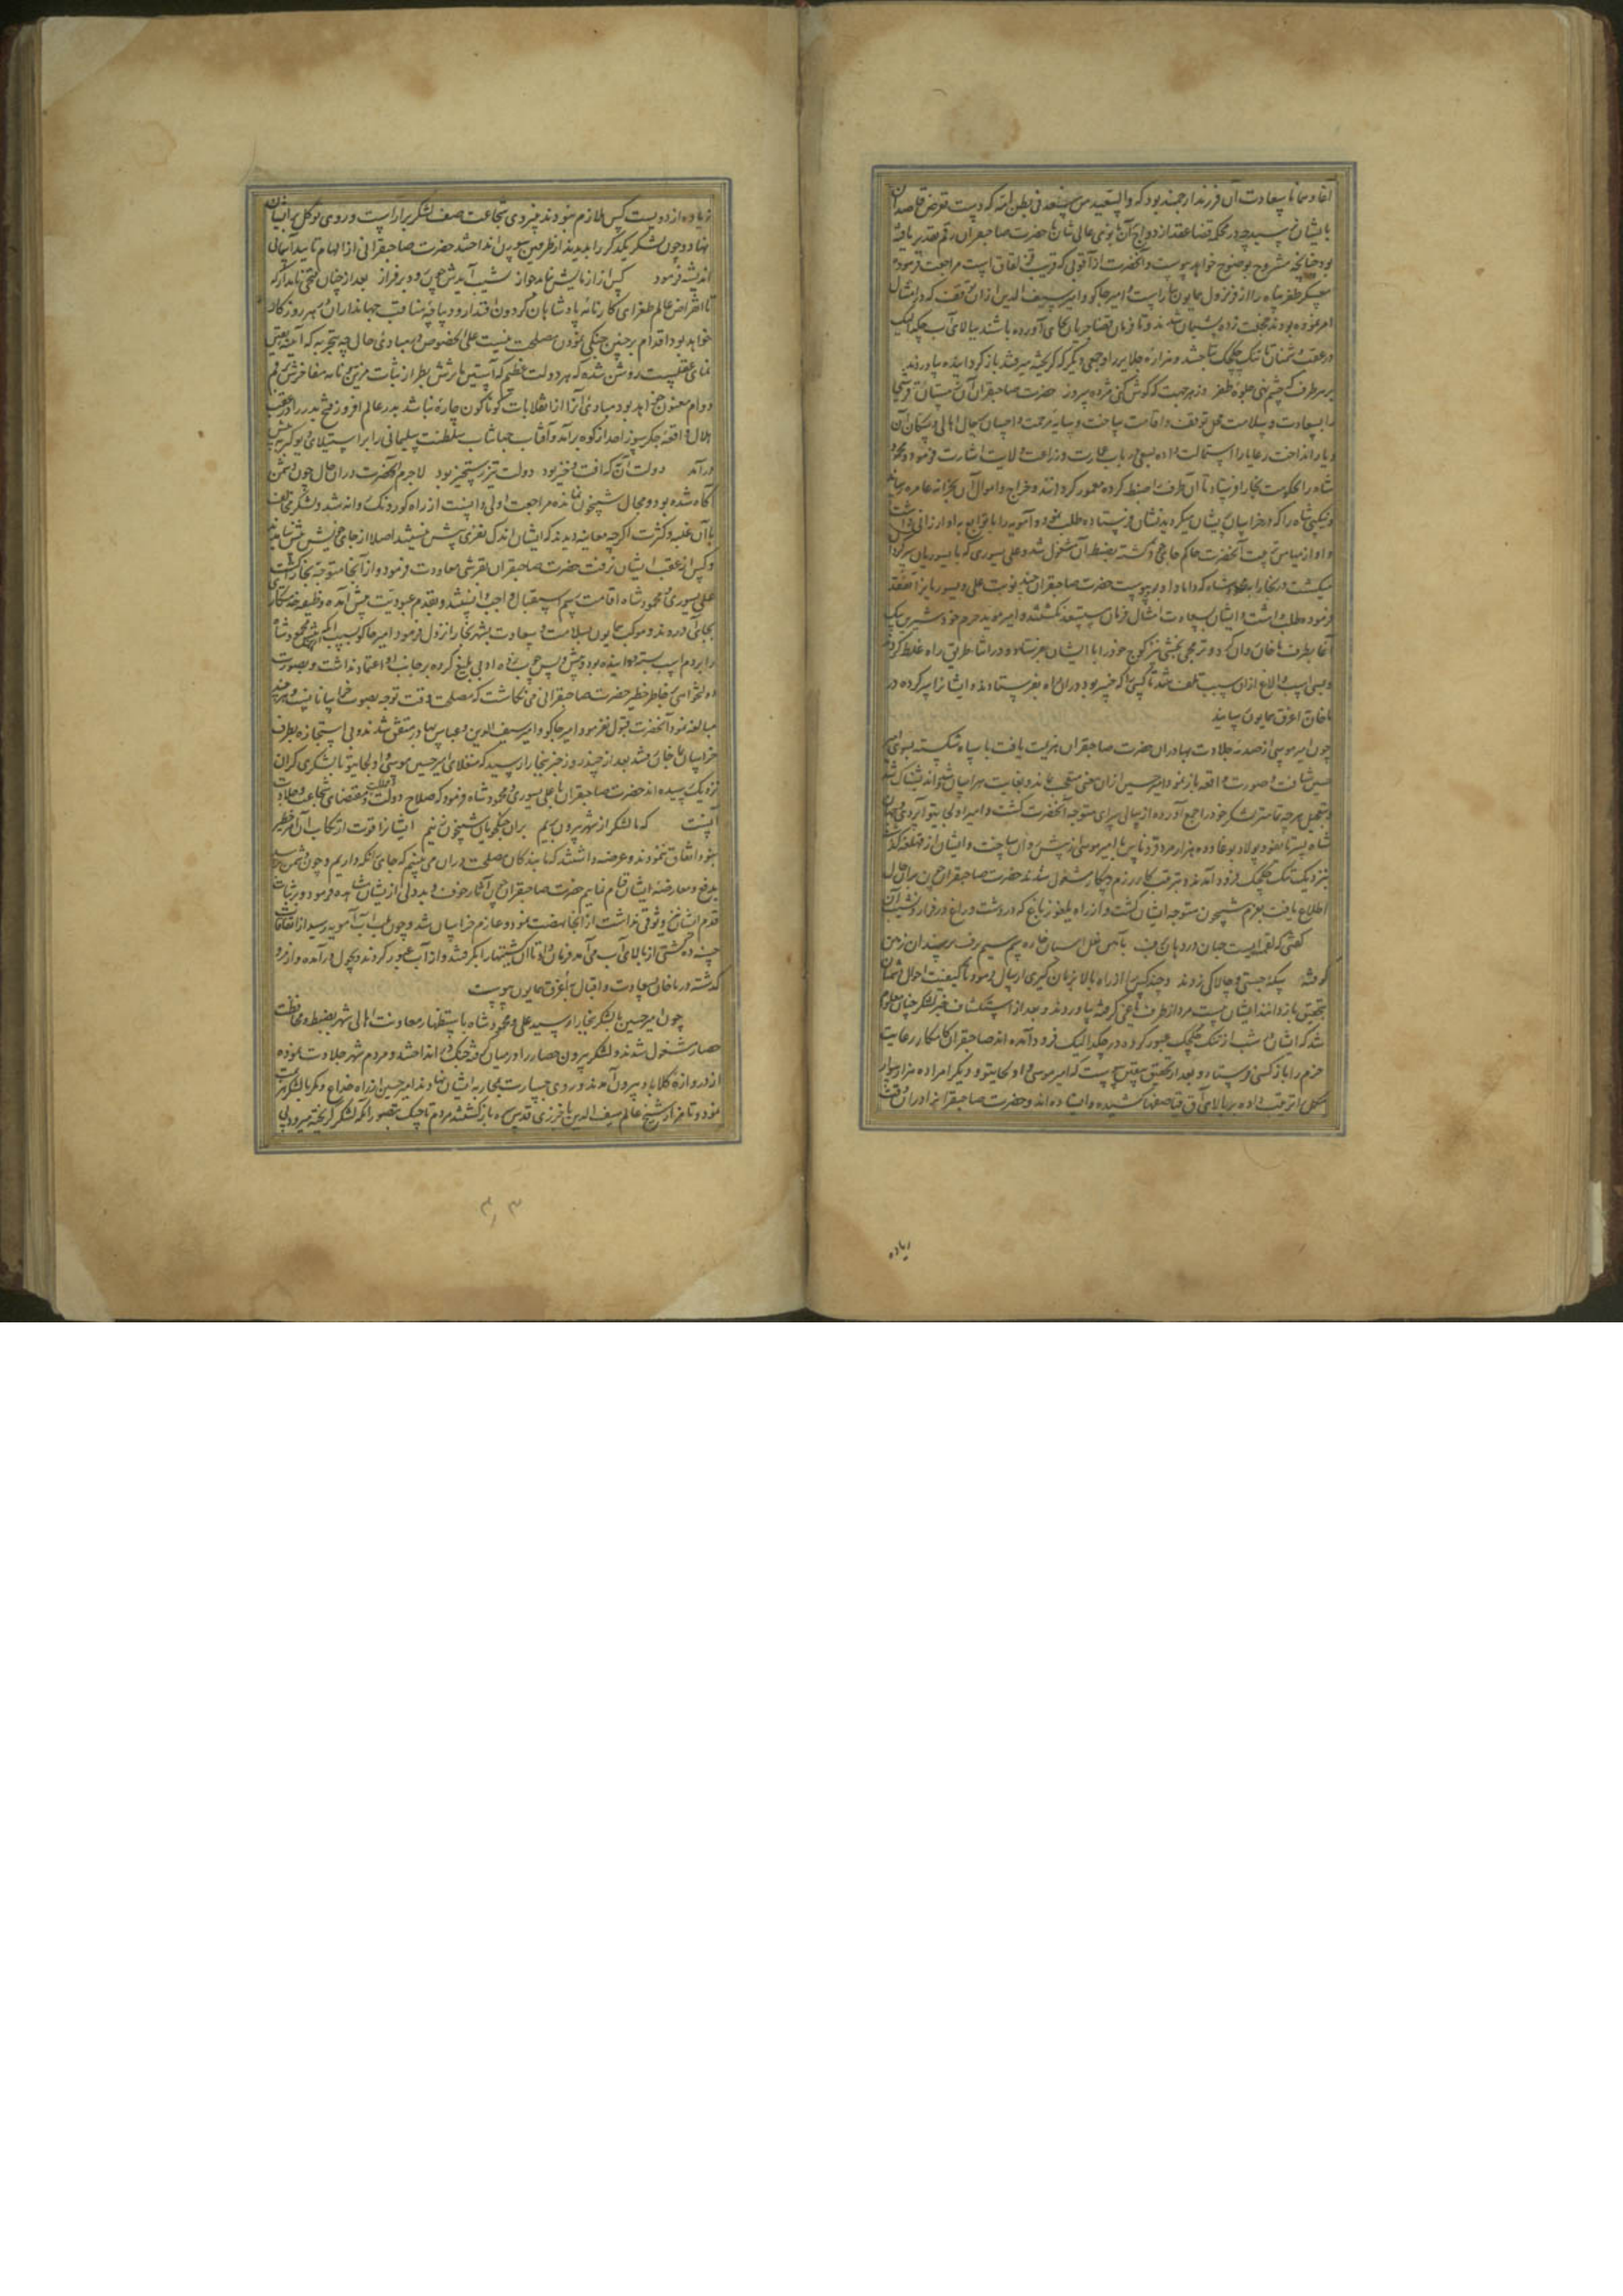 آغا و همانا بسعادت آن فرزند ارجمند بود که والسعید من سعد فی بطن امه که دست تعرض قاصدان
بایشان نرسید چه در محکمه قضا عقد ازدواج آن بانوی عالی شان با حضرت صاحبقران رقم تقدیر یافته
بود چنانچه مشروح بوضوح خواهد پیوست و آنحضرت از آقوبی که قریب است مراجعت فرموده
معسکر ظفر پناه را از فر نزول همایون بیاراست و امیر جاکو و امیر سیف الدین از آن توقف که در امتثال
امر نموده بودند خجلت زده و پشیمان شدند و تا فرمان قضا جریان بجای آورده باشند ببالای آب چکدالیک
در عقب دشمنان تا تنک چکچک بتاختند و هزاره جلایر را و جمعی دیگر که گریخته میرفتند بازگردانیده بیاوردند
بهر طرف که چشم نهی جلوه ظفر وز هر جهت که گوش کنی مژده سرور حضرت صاحبقران آن زمستان قرشی
را بسعادت و سلامت محل توقف و اقامت ساخت و سایه مرحمت و احسان بحال اهالی و سکان آن
دیار انداخت رعایا را استمالت داده بسعی در باب عمارت و زراعت ولایت اشارت فرمود و محمود
شاه را بحکومت بخارا فرستاد تا آن طرف را ضبط کرده معمور گرداند و خراج و اموال آن بخزانه عامره رساند
و نیکپی شاه را که در خراسان پریشان میگردید نشان فرستاده طلب نمود و آمویه را با توابع به او ارزانی داشت
و او از میامن تربیت آنحضرت حاکم جایی گشته بضبط آن مشغول شد و علی یسوری که با یسوریان سرگردان
میگشت در بخارا بمحمود شاه که داماد او بود پیوست حضرت صاحبقران چند نوبت علی و یسوریان را تفقد
فرموده طلب داشت و ایشان بسعادت امتثال فرمان مستسعد نگشتند و امیر موید حرم خود شیرین بیک
آغا بطرف ماخان روان کرد و ترمجی بخشی نیز کوچ خود را با ایشان بفرستاد و در اثنا طریق راه غلط کردند
و بسی اسب و الاغ از آن سبب تلف شد تا کسی را که خبیر بود در آن راه بفرستادند و ایشان را سر کرده در
ماخان اغرق همایون رسانید
چون امیر موسی از صدمه جلادت بهادران حضرت صاحبقران هزیمت یافت با سپاه شکسته بسوی امیر
حسین شتافت و صورت واقعه باز نمود امیر حسین از آن معنی متعجب بماند و بغایت هراسان و اندیشناک شد
و بتعجیل هر چه تمامتر لشکر خود را جمع آورده از سالی سرای متوجه آنحضرت گشت و امیر اولجایتو اپردی و جهان
شاه پسر تایغو و پولاد بوغا و ده هزار مرد قرناس با امیر موسی از پیش روان ساخت و ایشان از قهلغه گذشته
بنزدیک تنک چکچک فرود آمدند و بترتیب کار رزم و پیکار مشغول شدند حضرت صاحبقران چون بر آن حال
اطلاع یافت بعزم شبیخون متوجه ایشان گشت و از راه یلغوز باغ که در دشت و راغ و فراز و نشیب آن
کفتی که لقمه ایست جهان در دهان برف بآهنین نعل اسبان خاره سم سیم برف بر سندان زمین
کوفته سکه جستی و چالاکی زدند و چند کس را از راه بالا بزبان گیری ارسال فرمود تا کیفیت احوال دشمنان
بتحقیق بازدانند ایشان بیست مرد از طرف یاغی گرفته بیاوردند و بعد از استکشاف خبر لشکر چنان معلوم
شد که ایشان شب از تنک چکچک عبور کرده در چکدالیک فرود آمده اند صاحبقران کامکار رعایت
حزم را باز کسی فرستاد و بعد از تحقیق بیقین پیوست که امیر موسی و اولجایتو و دیگر امرا ده هزار سوار
مکمل را ترتیب داده بر بالای آق قیا صفها کشیده و ایستاده اند و حضرت صاحبقران را در آن وقت
زیاده
زیاده از دویست کس ملازم نبودند فیروزی شجاعت صف لشکر براراست و روی توکل بدیشان
نهاد و چون لشکر یکدیگر را بدیدند از طرفین سورن انداختند حضرت صاحبقرانی از الهام تایید آسمانی
اندیشه فرمود کس را ز آزمایش نماند جواز نشیب آیدش چون شود بر فراز بعد از چنان فتحی نامدار که
تا انقراض عالم طغرای کارنامه پادشاهان گردون اقتدار و دیباچه مناقب جهانداران سپهر روزگار
خواهد بود اقدام بر چنین جنگی نمودن مصلحت نیست علی الخصوص در مبادی حال چه بتجربه که آینه یقین
نمای عقلست روشن شده که هر دولت عظیم که آستین طرازش بطراز ثبات مزین و نامه مفاخرش برقم
دوام معنون خواهد بود مبادی آنرا از انقلابات گوناگون چاره نباشد بدر عالم افروز فتح بدر را در عقب
هلال واقعه جگرسوز احد از کوه برآمد و آفتاب جهانتاب سلطنت سلیمانی را بر استیلای دیو کربه پیش
درآمد دولت آن که افت و خیز بود دولت تیز رستخیز بود لاجرم آنحضرت در آن حال چون دشمن
آگاه شده بود و مجال شبیخون نمانده مراجعت اولی دانست از راه کوروتک روانه شد و لشکر مخالف
با آن غلبه و کثرت اگرچه معاینه دیدند که ایشان اندک نفری بیش نیستند اصلا از جای خویش نجنبیدند
و کس از عقب ایشان نرفت حضرت صاحبقران بقرشی معاودت فرمود و از آنجا متوجه بخارا گشت
علی یسوری و محمود شاه اقامت رسم استقبال واجب دانستند و بقدم عبودیت پیش آمده وظیفه خدمتکاری
بجای آوردند و موکب همایون بسلامت و سعادت بشهر بخارا نزول فرمود امیر جاکو بسبب آنکه محمود شاه
را بر دم اسب بسته دوانیده بود و پیش و پس چوب زده ادبی بلیغ کرده بر جانب او اعتماد نداشت و بصورت
دولتخواهی بر خاطر خطیر حضرت صاحبقرانی می نگاشت که مصلحت وقت توجه بصوب خراسانست و هر چند
مبالغه نمود آنحضرت قبول نفرمود امیر جاکو و امیر سیف الدین و عباس بهادر متفق شدند و بی استجازه بطرف
خراسان بماخان رفتند بعد از چند روز خبر ببخارا رسید که منقلای امیر حسین موسی و اولجایتو با لشکری گران
نزدیک رسیده اند حضرت صاحبقران با علی یسوری و محمود شاه فرمود که صلاح دولت و مقتضای شجاعت و جلادت
آنست که ما لشکر از شهر بیرون بریم بر آن جنگجویان شبیخون زنیم ایشان را قوت ارتکاب آن امر خطیر
نبود اتفاق ننمودند و عرضه داشتند که ما بندگان مصلحت در آن می بینیم که جای نگه داریم و چون دشمن برسد
بدفع و معارضه ایشان قیام نماییم حضرت صاحبقران چون آثار خوف و بددلی از ایشان مشاهده فرمود و بر ثبات
قدم ایشان وثوقی نداشت از آنجا نهضت نموده عازم خراسان شد و چون بلب آب آمویه رسید از اتفاقات
حسنه ده کشتی از بالای آب می آمد فرمان داد تا آن کشتیها را بگرفتند و از آب عبور کردند و بچول درآمده و از مرو
گذشته در ماخان بسعادت و اقبال با اغرق همایون پیوست
چون امیر حسین با لشکر ببخارا رسید علی و محمود شاه باستظهار معاونت اهالی شهر بضبط و محافظت
حصار مشغول شدند و لشکر بیرون حصار را در میان گرفته جنگ در انداختند و مردم شهر جلادت نموده
از دروازه کلاباد بیرون آمدند و روی جسارت بمحاربه ایشان نهادند امیر حسین از راه خداع و مکر با لشکر هزیمت
نمود و تا مزار شیخ عالم سیف الدین باخرزی قدس سره بازگشتند مردم تاجیک بتصور آنکه لشکر گریخته میرود پی